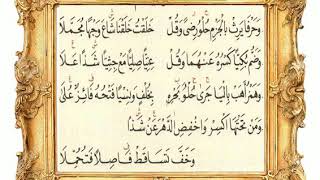 وَحَرْفَا يَرِثْ بِالْجَزْمِ حُلْوُ رِضًى وَقُلْ خَلَقْتُ خَلَقْنَا شَاعَ وَجْهًا مُجَمَّلَا
وَضَمُّ بُكِيًّا كَسْرُهُ عَنْهُمَا وَقُلْ عِتِيًّا صِلِيًّا مَعْ جِثِيًّا شَذًا عَلَا
وَهَمْزُ أَهَبْ بِالْيَا جَرَى حُلْوُ بَحْرِهِ بِخُلْفٍ وَنِسْيًا فَتْحُهُ فَائِزٌ عُلَى
وَمَنْ تَحْتَهَا اكْسِرْ وَاخْفِضِ الدَّهْرَ عَنْ شَذًا
وَخَفَّ تَسَاقَطْ فَاصِلًا فَتُحُمِّلَا